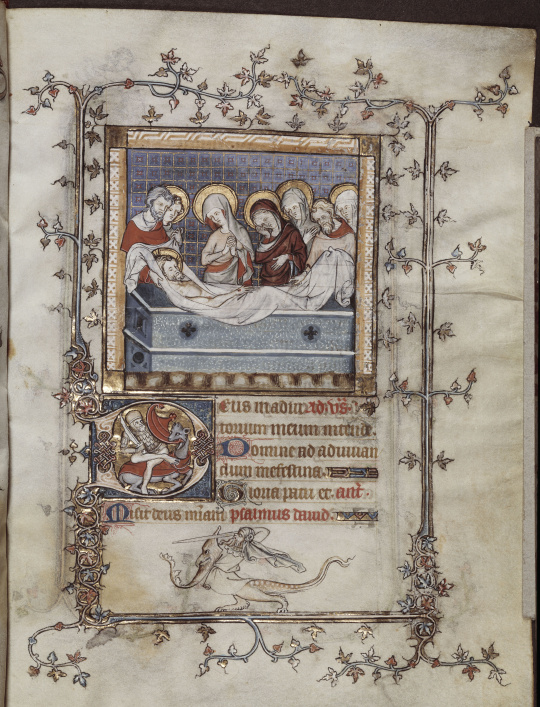 Deus in adiutorium
torium meum intende
Domine ad adiuuan
dum me festina.
Gloria patri et. ant̄.
Misit deus mīam psalmus dauid.